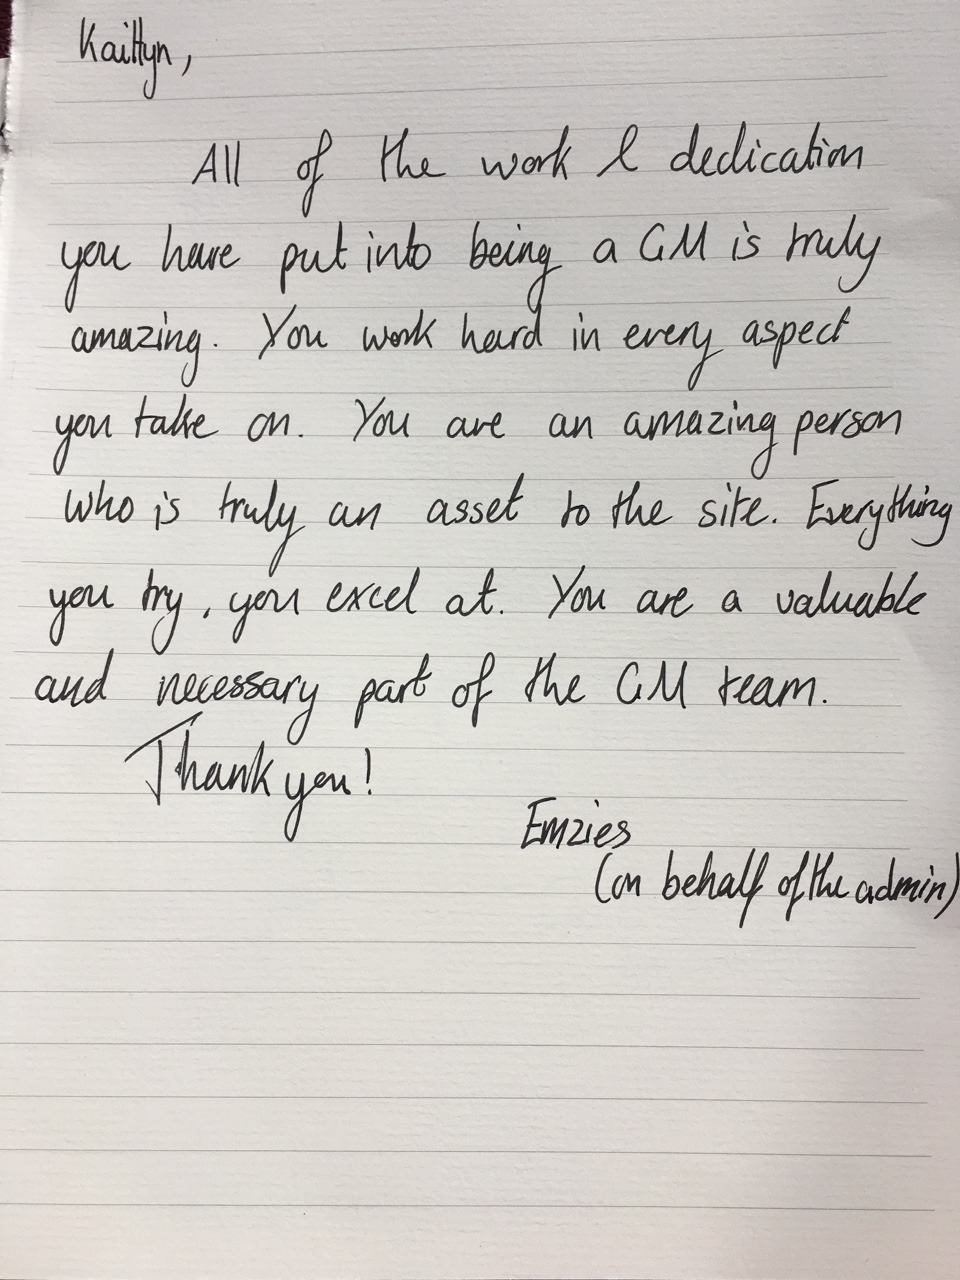 Kaitlyn,
All of the work & dedication
you have put into being a GM is truly
amazing. You work hard in every aspect
you take on. You are an amazing person
who is truly an asset to the site. Everything
you try, you excel at. You are a valuable
and necessary part of the GM team.
Thank you!
Emzies
(on behalf of the admin)